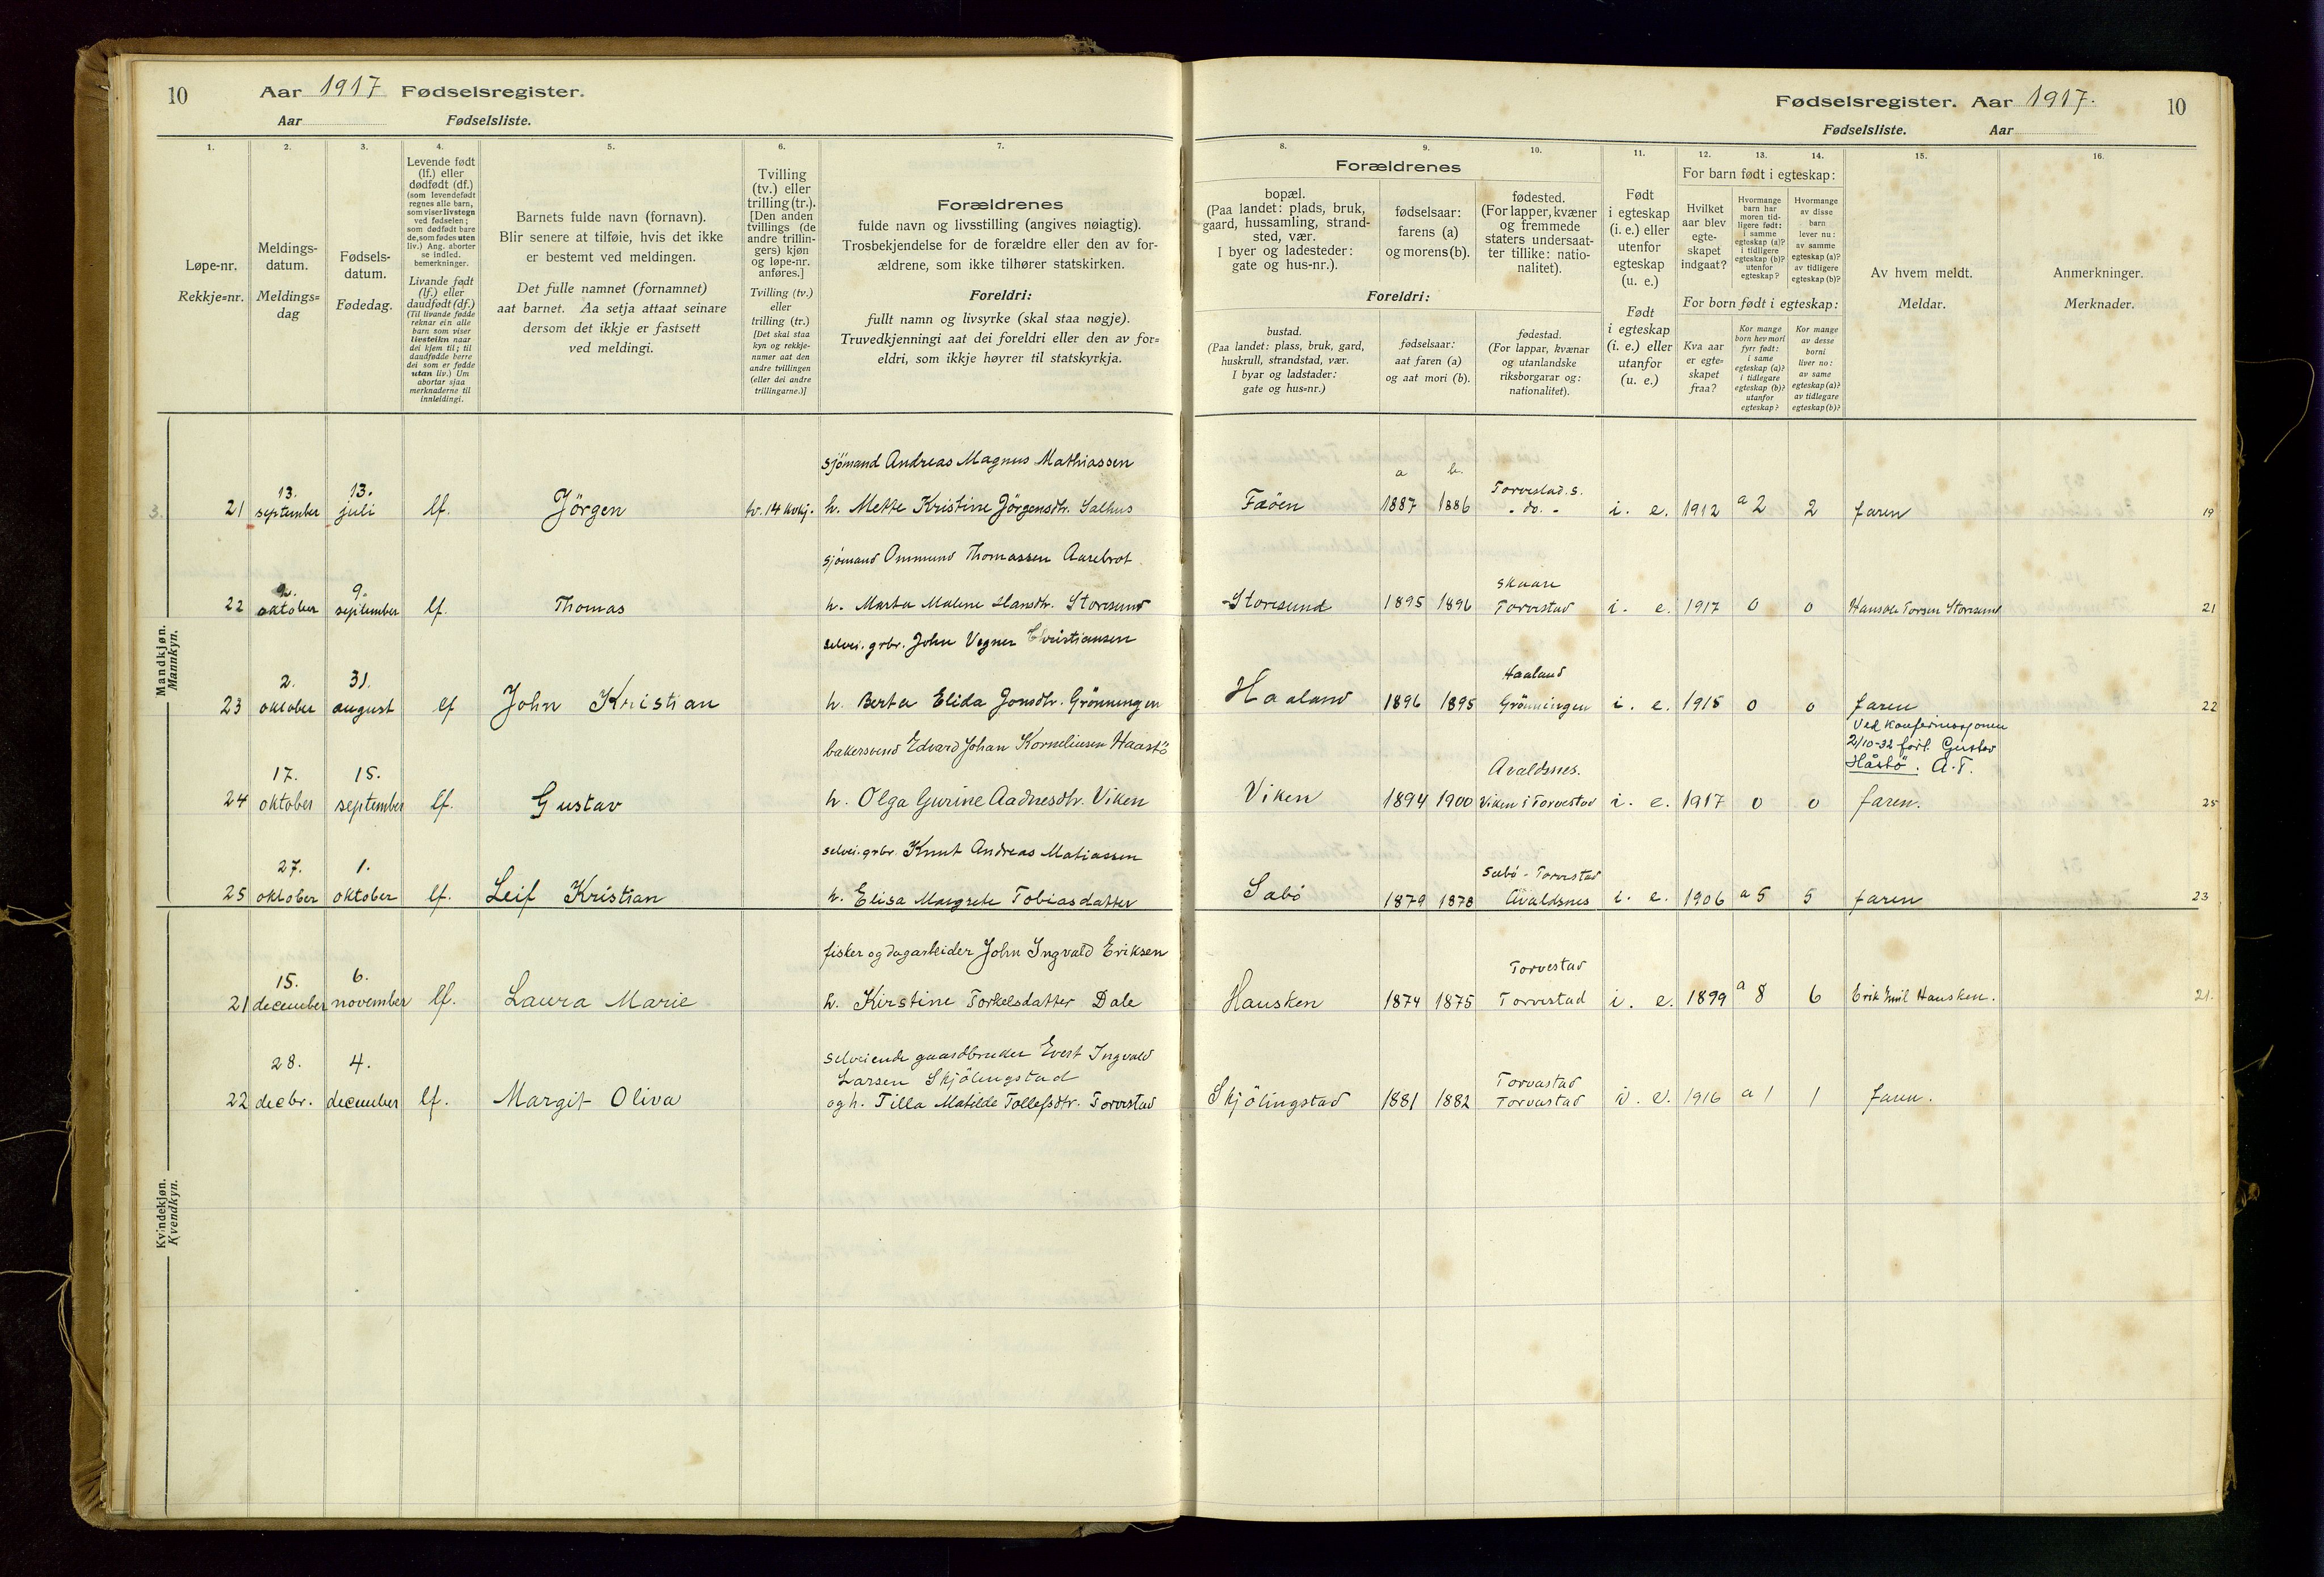 10 Aar 1917 Fødselsregister.
Aar Fødselsliste.
Fødselsregister. Aar 1917. 10
Fødselsliste. Aar
1. 2. 3. 4. 5. 6. 7.
Løpe-nr.
Rekkje=nr.
Meldings-
datum.
Meldings=
dag
Fødsels-
datum.
Fødedag.
Levende født
(lf.) eller
dødfødt (df.)
(som levendefødt
regnes alle barn,
som viser livstegn
ved fødselen;
som dødfødt bare
de, som fødes uten
liv.) Ang. aborter
se indled.
bemerkninger.
Livande født
(lf.) eller
daudfødt (df.)
(Til livande fødde
reknar ein alle
barn som viser
livsteikn naar
dei kjem til; til
daudfødde berre
dei som er fødde
utan liv.) Um
abortar sjaa
merknaderne til
innleidingi.
Barnets fulde navn (fornavn).
Blir senere at tilføie, hvis det ikke
er bestemt ved meldingen.
Det fulle namnet (fornamnet)
aat barnet. Aa setja attaat seinare
dersom det ikkje er fastsett
ved meldingi.
Tvilling
(tv.) eller
trilling (tr.).
[Den anden
tvillings (de
andre trillin-
gers) kjøn
og løpe-nr.
anføres.]
Tvilling (tv.)
eller
trilling (tr.)
[Det skal staa
kyn og rekkje-
numer aat den
andre tvillingen
(eller dei andre
trillingarne.)]
Forældrenes
fulde navn og livsstilling (angives nøiagtig).
Trosbekjendelse for de forældre eller den av for-
ældrene, som ikke tilhører statskirken.
Foreldri:
fullt namn og livsyrke (skal staa nøgje).
Truvedkjenningi aat dei foreldri eller den av for=
eldri, som ikkje høyrer til statskyrkja.
8. 9. 10. 11. 12. 13. 14. 15. 16.
Forældrenes
bopæl.
(Paa landet: plads, bruk,
gaard, hussamling, strand-
sted, vær.
I byer og ladesteder:
gate og hus-nr.).
fødselsaar:
farens (a)
og morens (b).
fødested.
(For lapper, kvæner
og fremmede
staters undersaat-
ter tillike: natio-
nalitet).
Foreldri:
bustad.
(Paa landet: plass, bruk, gard,
huskrull, strandstad, vær.
I byar og ladstader:
gate og hus=nr.)
fødselsaar:
aat faren (a)
og aat mori (b).
fødestad.
(For lappar, kvænar
og utanlandske
riksborgarar og:
nationalitet).
Født
i egteskap
(i. e.) eller
utenfor
egteskap
(u. e.)
Født
i egteskap
(i. e.) eller
utanfor
(u. e.)
For barn født i egteskap:
Hvilket
aar blev
egte-
skapet
indgaat?
Hvormange
barn har
moren tid-
ligere født:
i samme
egteskap (a)?
i tidligere
egteskap (b)?
utenfor
egteskap?
Hvormange
av disse
barn
lever nu:
av samme
egteskap (a)?
av tidligere
egteskap (b)?
For born født i egteskap:
Kva aar
er egte=
skapet
fraa?
Kor mange
born hev mori
fyrr født:
i same
egteskap (a)?
i tidlegare
egteskap (b)?
utanfor
egteskap?
Kor mange
av desse
borni
liver no:
av same
egteskap (a)?
av tidlegare
egteskap (b)?
Av hvem meldt.
Meldar.
Anmerkninger.
Merknader.
Mandkjøn.
Mannkyn.
sjömand Andreas Magnus Mathiassen
3. 21 13. september 13. juli lf. Jörgen tv. 14 kvkj. h. Mette Kristine Jörgensdtr. Salhus
Faöen a 1887 b. 1886 Torvestad. s. - do. - i. e. 1912 a 2 2 faren 19
sjömand Ommund Thomassen Aarebrot
22 2. oktober 9. september lf. Thomas h. Marta Malene Hansdtr. Storesund
Storesund 1895 1896 Skaare Torvestad i. e. 1917 0 0 Torsen Storesund 21
selvei. grbr. John Vegner Christiansen
23 2. oktober 31. august lf John Kristian h. Berta Elida Jonsdtr. Grönningen
Haaland 1896 1895 Haaland Grönningen i. e. 1915 0 0 faren 22
Ved konfirmasjonen
2/10-32 förl. Gustav
Håstö. A.T.
bakersvend Edvard Johan Korneliusen Haastö
24 17. oktober 15. september lf. Gustav h. Olga Gurine Aadnesdtr. Viken
Viken 1894 1900 Avaldsnes. Viken i Torvestad i. e. 1917 0 0 faren. 25
selvei. grbr. Knut Andreas Matiassen
25 27. oktober 1. oktober lf. Leif Kristian h. Elisa Margrete Tobiasdatter
Sæbö 1879 1878 Sæbö - Torvestad Avaldsnes i. e. 1906 a 5 5 faren 23
Kvindekjøn.
Kvendkyn.
fisker og dagarbeider John Ingvald Eriksen
21 15. december 6. november lf. Laura Marie h. Kirstine Torkelsdatter Dale
Hausken 1874 1875 Torvestad Torvestad i. e. 1899 a 8 6 Erik Emil Hausken. 21.
selveiende gaardbruker Evert Ingvald
Larsen Skjölingstad
22 28. decbr. 4. december lf. Margit Oliva og h. Tilla Matilde Tollefsdtr. Torvestad
Skjölingstad 1881 1882 Torvastad Torvastad i. e. 1916 a 1 1 faren.